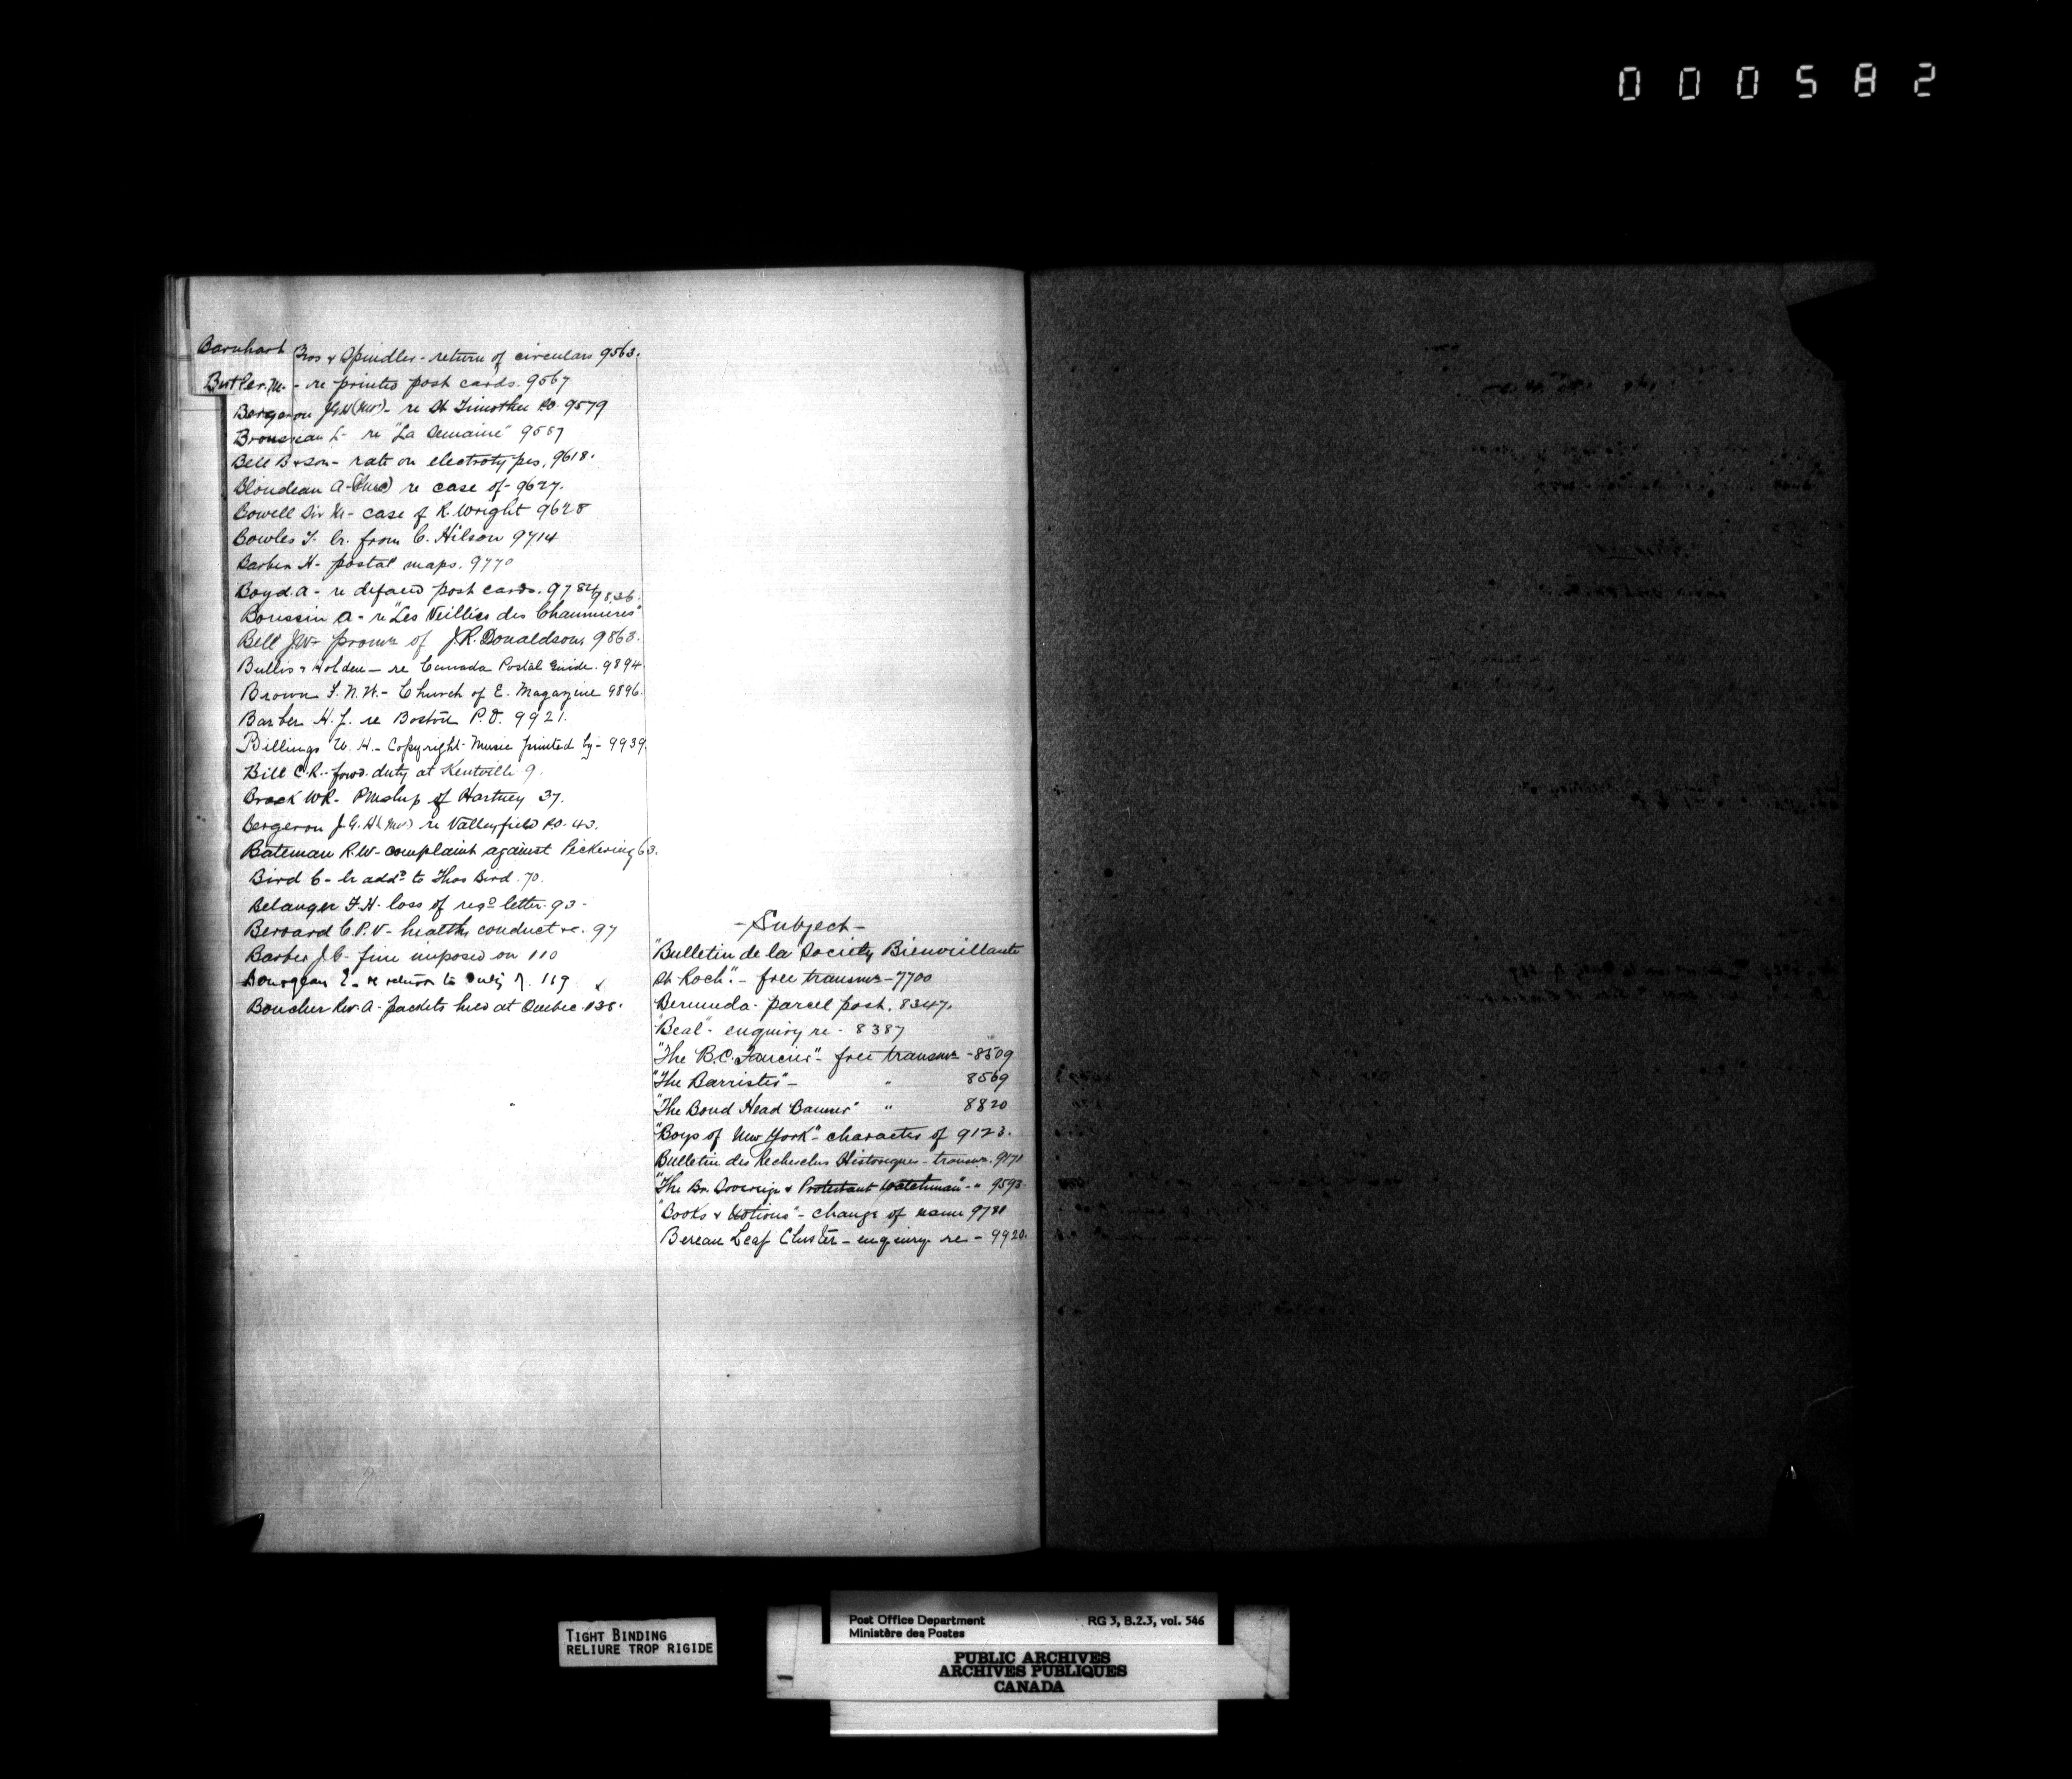 000582
Barnhart Bros & Spindler - return of circulars 9563.
Butler. M. - re printed post cards. 9567
Bergeron J G H (Mr) - re St Timothee P.O. 9579
Brousseau L - re "La Semaine" 9587
Bell B & Son - rate on electrotypes, 9618.
Blondeau A - re case of - 9627.
Bowell Sir M - case of R. Wright 9628
Bowles T. lr. from C. Hilson 9714
Barber H - postal maps. 9770
Boyd. A - re defaced post cards. 9784/9836.
Boussin A - re "Les Veillées des Chaumières"
Bell J.W - promn of J.R. Donaldson, 9863.
Bullis & Holden - re Canada Postal Guide. 9894
Brown F. N. W. - Church of E. Magazine 9896.
Barber H. J. re Boston P.O. 9921.
Billings W. H. - Copyright Music printed by - 9939.
Bill C.R. - forwd. duty at Kentville 9.
Brock WR - Pmship of Hartney 37.
Bergeron J. G. H (Mr) re Valleyfield P.O. 43.
Bateman R.W - complaint against Pickering 63.
Bird C - lr addd to Thos Bird. 70.
Belanger F. H - loss of regd letter. 93 -
Bernard C. P. V - health, conduct &c. 97
Barber J C - fine imposed on 110
Bourgeau E - re return to duty of. 119
Boucher Rev. A - packets held at Quebec. 138.
- Subject -
"Bulletin de la Society Bienveillante
St. Roch". - free transmn - 7700
Bermuda - parcel post. 8347.
"Beal" - enquiry re - 8387
"The B.C. Fancier" - free transmn - 8509
"The Barrister" - " 8569
"The Bond Head Banner" " 8820
"Boys of New York" - character of 9123.
Bulletin des Recherches Historiques - transmn. 9171
"The Br. Sovereign & Protestant Watchman" - " 9593
"Books & Notions" - change of name 9781
Berean Leaf Cluster - enquiry re - 9920.
TIGHT BINDING
RELIURE TROP RIGIDE
Post Office Department RG 3, B.2.3, vol. 546
Ministère des Postes
PUBLIC ARCHIVES
ARCHIVES PUBLIQUES
CANADA